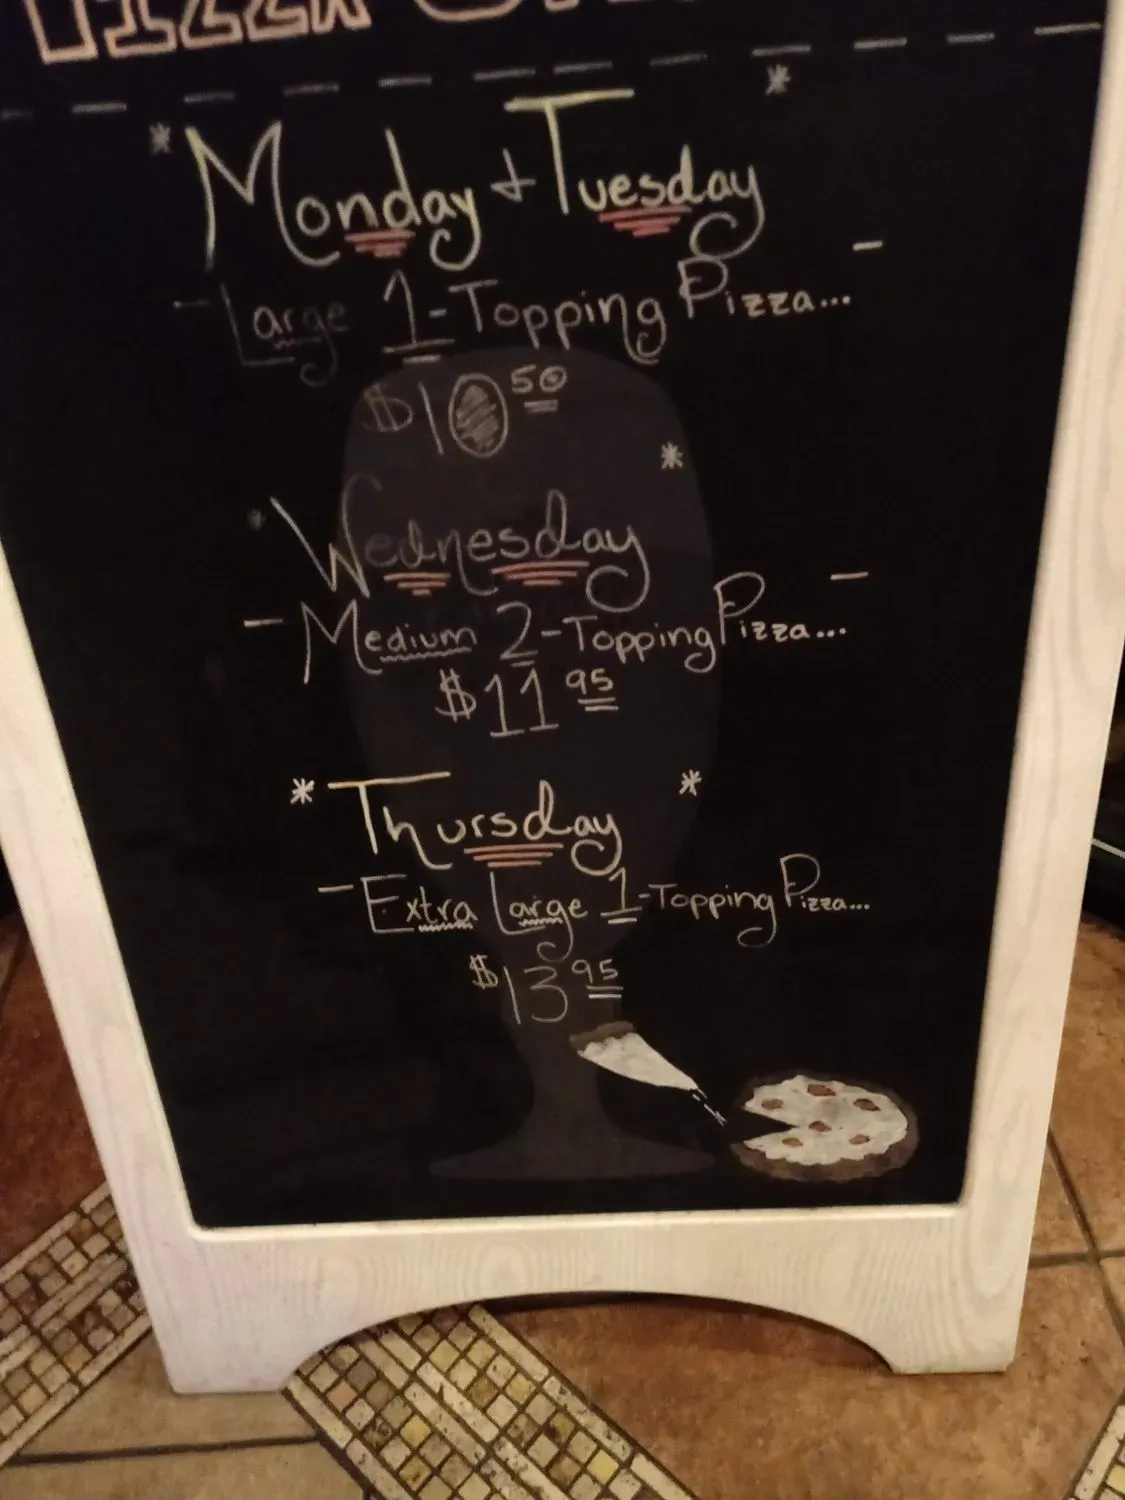 PIZZA
*Monday + Tuesday*
-Large 1-Topping Pizza...-
$10.50
*Wednesday*
-Medium 2-Topping Pizza...-
$11.95
*Thursday*
-Extra Large 1-Topping Pizza...
$13.95